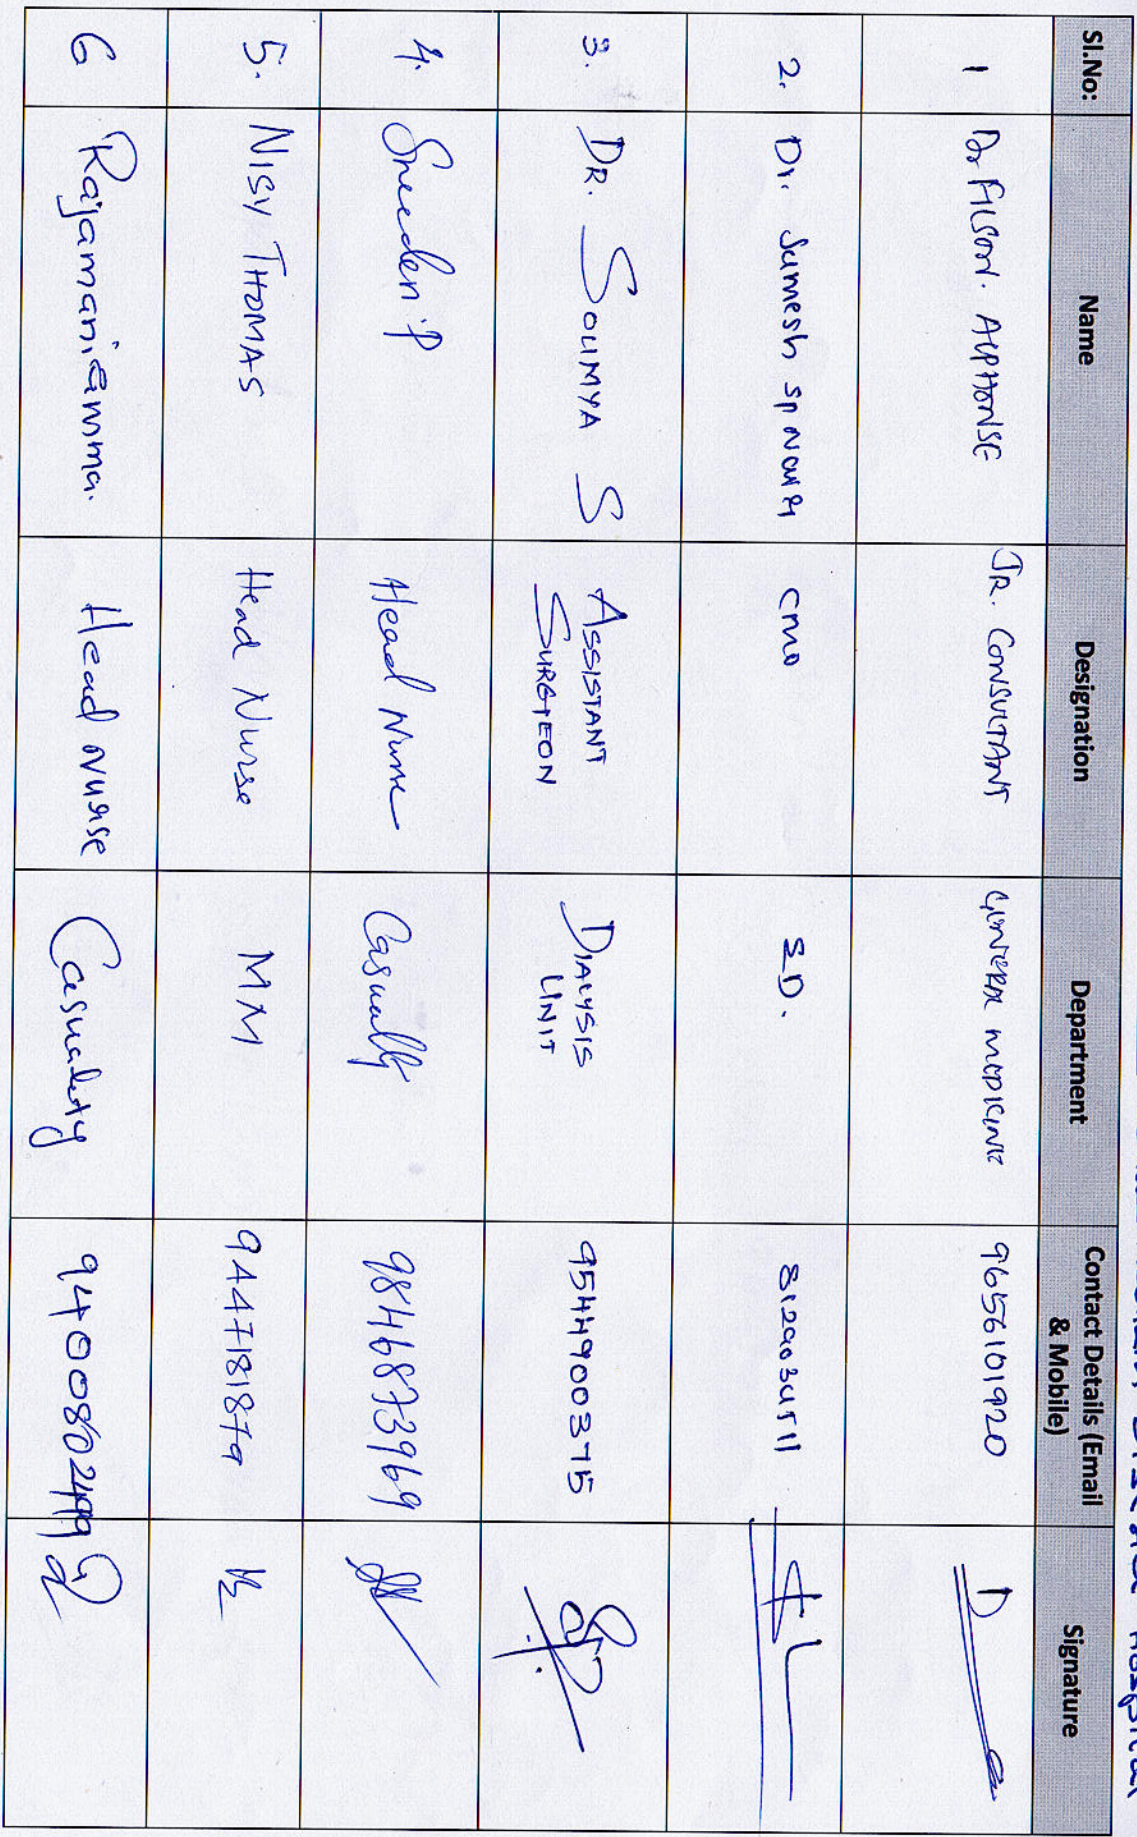 District Hospital
Sl.No: Name Designation Department Contact Details (Email & Mobile) Signature
1 Dr FILSON. ALPHONSE JR. CONSULTANT GENERAL MEDICINE 9656101920
2. Dr. Sumesh CMO
3. DR. SOUMYA S ASSISTANT SURGEON DIALYSIS UNIT 9544900375
4. Head Nurse Casualty 9846873969
5. NISY THOMAS Head Nurse MM 9447181879
6 Rajamaniamma. Head Nurse Casuality